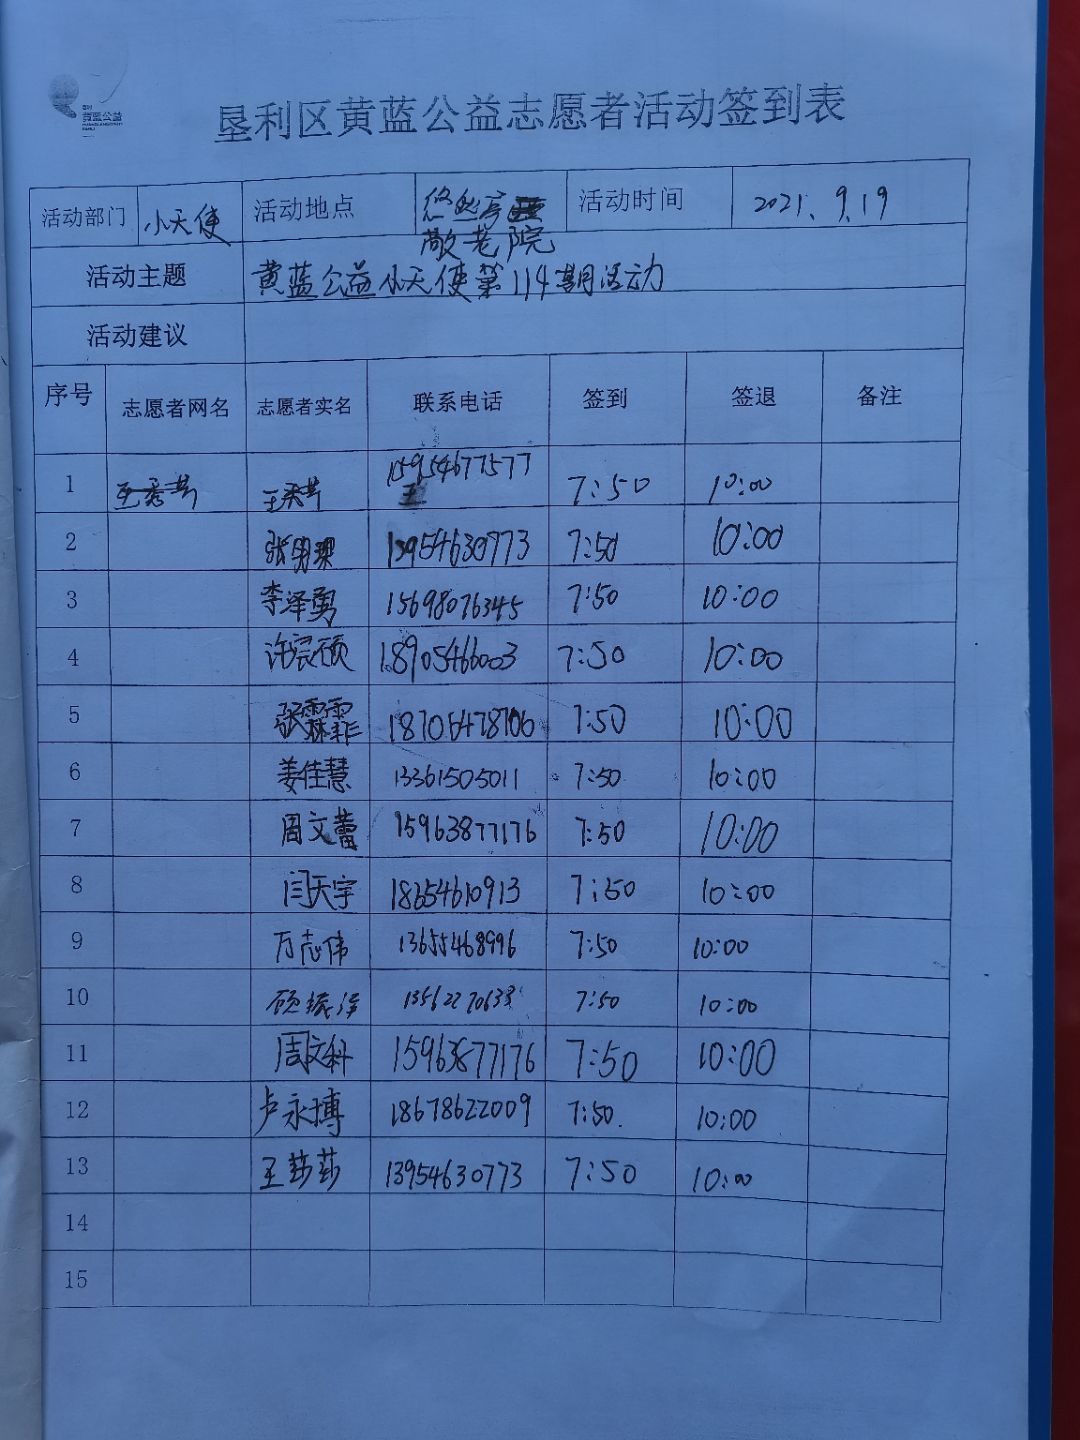 黄蓝公益
垦利区黄蓝公益志愿者活动签到表
活动部门 小天使 活动地点 敬老院 活动时间 2021.9.19
活动主题 黄蓝公益小天使第114期活动
活动建议
序号 志愿者网名 志愿者实名 联系电话 签到 签退 备注
1 15954677577 7:50 10:00
2 13954630773 7:50 10:00
3 李泽勇 15698076345 7:50 10:00
4 许宸硕 18905466003 7:50 10:00
5 张霖霏 7:50 10:00
6 姜佳慧 13361505011 7:50 10:00
7 周文蕾 15963877176 7:50 10:00
8 闫天宇 18654610913 7:50 10:00
9 万志伟 13655468996 7:50 10:00
10 7:50 10:00
11 周文科 15963877176 7:50 10:00
12 卢永博 18678622009 7:50. 10:00
13 王莎莎 13954630773 7:50 10:00
14
15